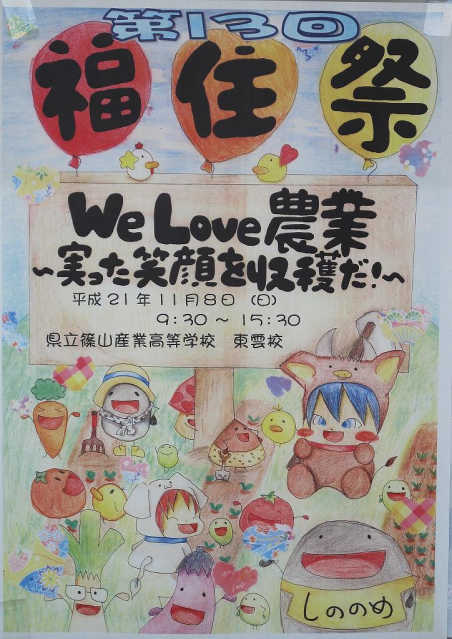 第13回
福住祭
We Love 農業
~実った笑顔を収穫だ!~
平成21年11月8日（日）
9:30～15:30
県立篠山産業高等学校　東雲校
しののめ